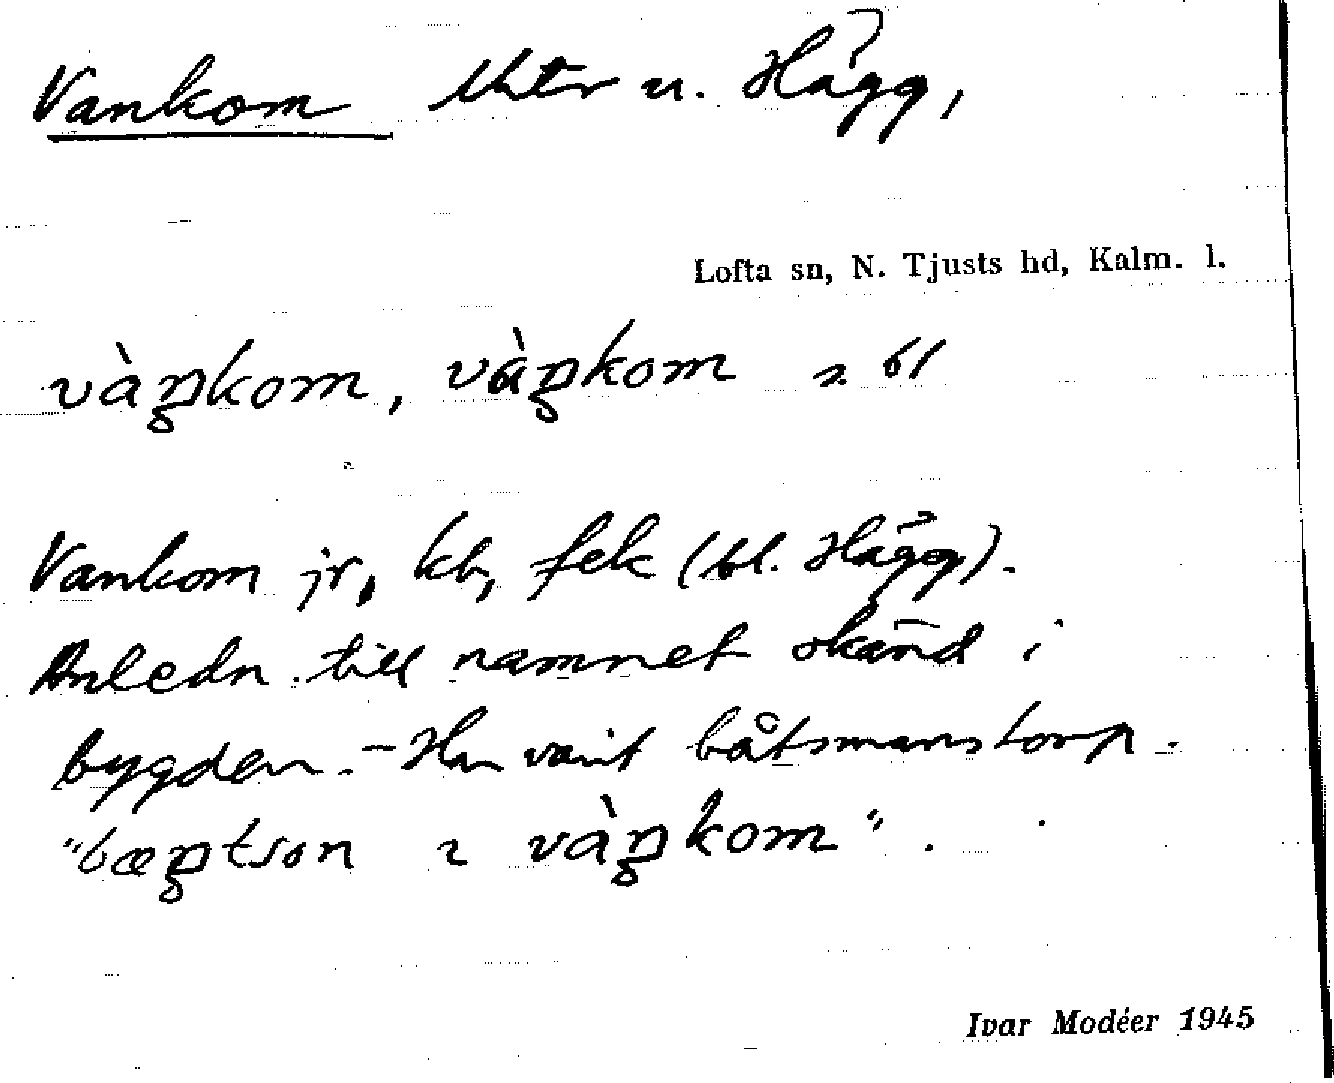 Vankom thtr u. Hägg,
Lofta sn, N. Tjusts hd, Kalm. l.
vàn̥kom, vàn̥kom 2 61
Vankom jr, kb, fek (bl. Hägg).
Anledn. till namnet okänd i
bygden. - Har varit båtsmanstorp.
"bæn̥tson 2 vàn̥kom".
Ivar Modéer 1945